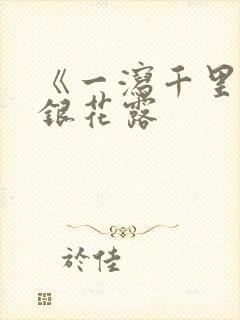 《一瀉千里
銀花露
於佳